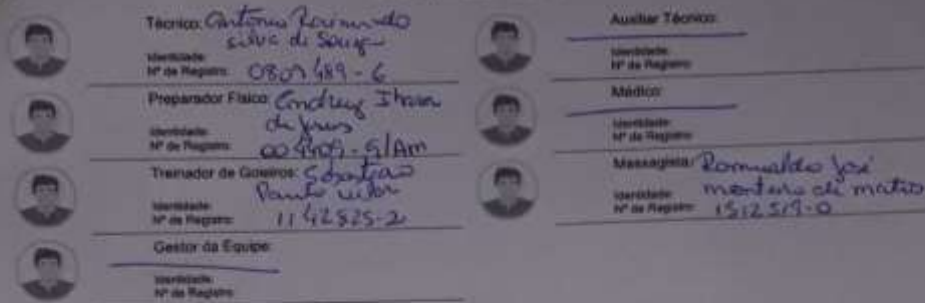 Técnico: Antonio Raimundo
silva de Souza
Identidade:
Nº de Registro: 0807489-6
Preparador Físico:
de Jesus
Identidade:
Nº de Registro: G/Am
Treinador de Goleiros: Sebastiao
Paulo
Identidade:
Nº de Registro: 1142825-2
Gestor da Equipe:
Identidade:
Nº de Registro:
Auxiliar Técnico:
Identidade:
Nº de Registro:
Médico:
Identidade:
Nº de Registro:
Massagista: Romualdo José
monteiro de matos
Identidade:
Nº de Registro: 1512519-0